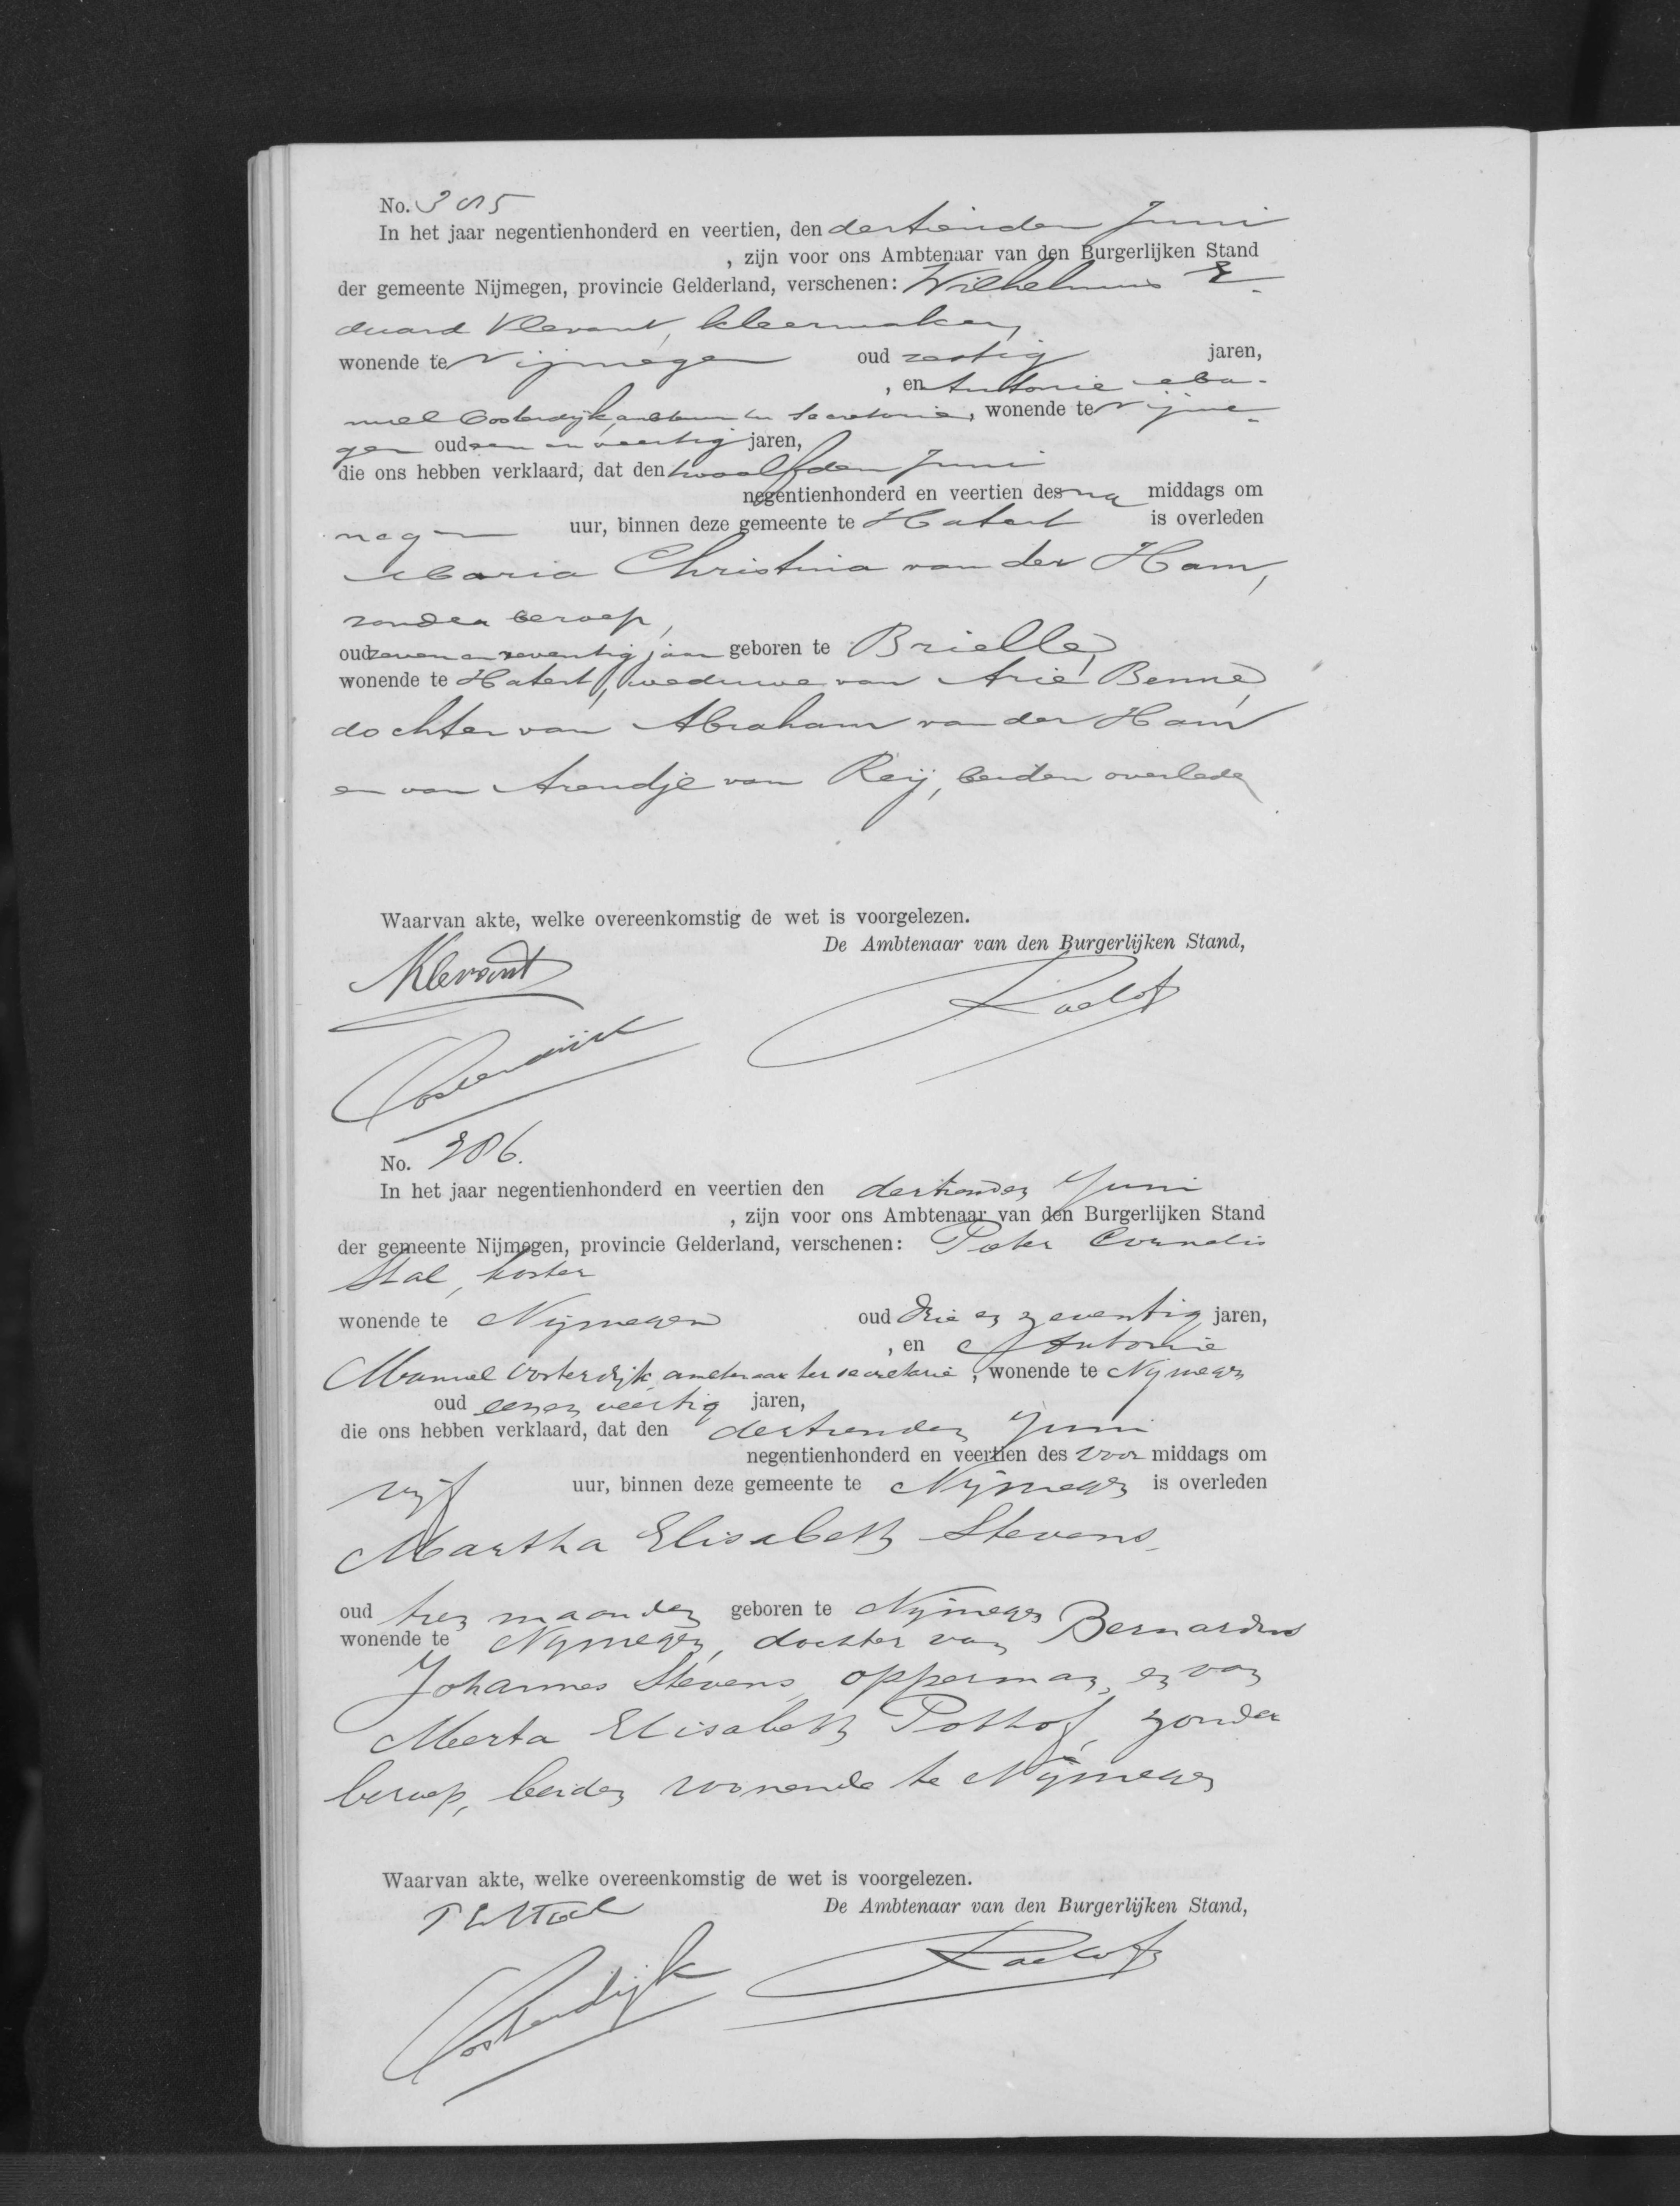 No. 305
In het jaar negentienhonderd en veertien, den dertienden Juni
, zijn voor ons Ambtenaar van den Burgerlijken Stand
der gemeente Nijmegen, provincie Gelderland, verschenen: Wilhelmus E-
duard Klevant, kleermaker,
wonende te Nijmegen oud zestig jaren,
, en Antonie Ma-
nuel Oosterdijk, ambtenaar ter secretarie, wonende te Nijme-
gen oud een en veertig jaren,
die ons hebben verklaard, dat den twaalfden Juni
negentienhonderd en veertien des na middags om
negen uur, binnen deze gemeente te Hatert is overleden
Maria Christina van der Ham,
zonder beroep,
oud zeven en zeventig jaar geboren te Brielle,
wonende te Hatert, weduwe van Arie Benne,
dochter van Abraham van der Ham
en van Arendje van Reij, beiden overleden
Waarvan akte, welke overeenkomstig de wet is voorgelezen.
De Ambtenaar van den Burgerlijken Stand,
Klevant
Oosterdijk
No. 306.
In het jaar negentienhonderd en veertien den dertienden Juni
, zijn voor ons Ambtenaar van den Burgerlijken Stand
der gemeente Nijmegen, provincie Gelderland, verschenen: Pieter Cornelis
Stal, koster
wonende te Nijmegen oud drie en zeventig jaren,
, en Antonie
Manuel Oosterdijk, ambtenaar ter secretarie, wonende te Nijmegen
oud een en veertig jaren,
die ons hebben verklaard, dat den dertienden Juni
negentienhonderd en veertien des voor middags om
vijf uur, binnen deze gemeente te Nijmegen is overleden
Martha Elisabeth Stevens,
oud tien maanden geboren te Nijmegen
wonende te Nijmegen, dochter van Bernardus
Johannes Stevens, opperman, en van
Merta Elisabeth Pothof, zonder
beroep, beiden wonende te Nijmegen
Waarvan akte, welke overeenkomstig de wet is voorgelezen.
De Ambtenaar van den Burgerlijken Stand,
Oosterdijk